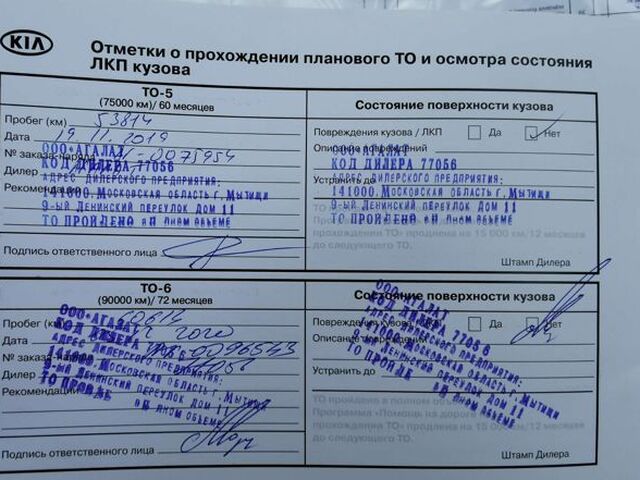 KIA
Отметки о прохождении планового ТО и осмотра состояния
ЛКП кузова
ТО-5
(75000 км)/ 60 месяцев
Пробег (км) 53814
Дата 19 11. 2019
№ заказа-наряда 0075954
ООО«АГАЛАТ
КОД ДИЛЕРА 77056
Дилер
АДРЕС ДИЛЕРСКОГО ПРЕДПРИЯТИЯ:
Рекомендации
141000. Московская область г. Мытищи
9-ый Ленинский переулок дом 11
ТО ПРОЙДЕНО в П лном объеме
Подпись ответственного лица
Состояние поверхности кузова
Повреждения кузова / ЛКП Да Нет
Описание повреждений
КОД ДИЛЕРА 77056
Устранить до
АДРЕС ДИЛЕРСКОГО ПРЕДПРИЯТИЯ:
141000. Московская область г. Мытищи
9-ый Ленинский переулок дом 11
ТО ПРОЙДЕНО в П лном объеме
прохождении ТО» продлена на 15 000 км/12 месяцев
до следующего ТО.
Штамп Дилера
ТО-6
(90000 км)/ 72 месяцев
Пробег (км)
Дата
№ заказа 0096543
Дилер
Рекомендации
ООО«АГАЛАТ
КОД ДИЛЕРА
АДРЕС ДИЛЕРСКОГО ПРЕДПРИЯТИЯ:
Московская область г. Мытищи
9-ый Ленинский переулок дом 11
ТО ПРОЙДЕ
в П лном объеме
Подпись ответственного лица
Состояние поверхности кузова
Повреждения кузова / ЛКП Да Нет
Описание повреждений
Устранить до
ООО«АГАЛАТ
КОД ДИЛЕРА 77056
АДРЕС ДИЛЕРСКОГО ПРЕДПРИЯТИЯ:
Московская область г. Мытищи
Ленинский переулок дом 11
ТО ПРОЙДЕ
в П лном объеме
ТО пройдено в полном объеме
Программа «Помощь на дороге
продлена на 15 000 км/12 месяцев
до следующего ТО.
Штамп Дилера